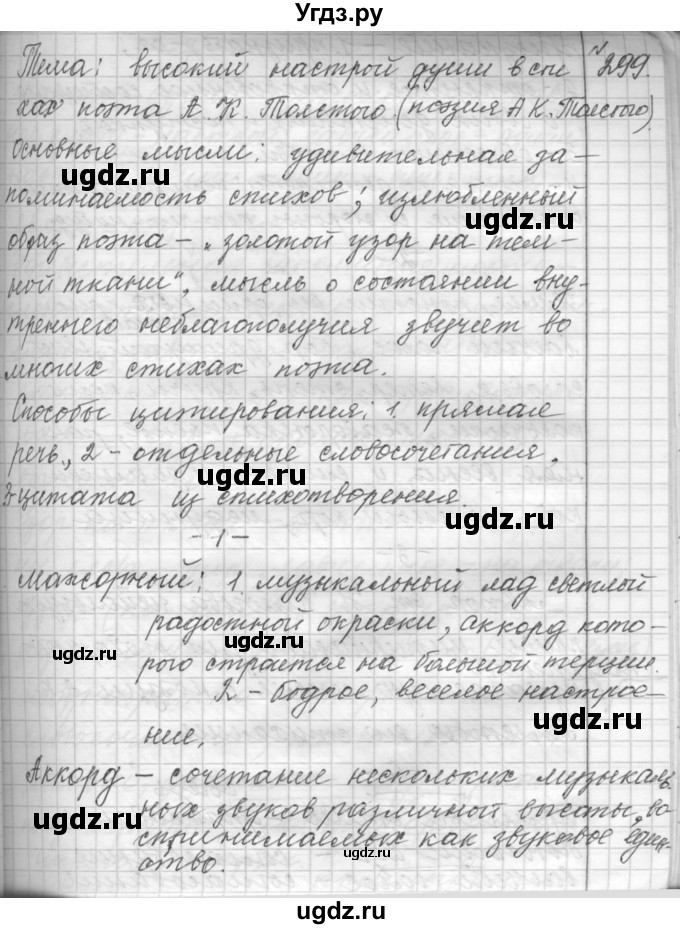 Угдз.ру
№ 299.
Тема: высокий настрой души в сти
хах поэта А. К. Толстого (поэзия А К. Толстого).
Основные мысли: удивительная за-
поминаемость стихов; излюбленный
образ поэта – „золотой узор на тем-
ной ткани“, мысль о состоянии вну-
треннего неблагополучия звучит во
многих стихах поэта.
Способы цитирования: 1. прямая
речь, 2 – отдельные словосочетания.
3-цитата из стихотворения.
- 1 -
Мажорный: 1. музыкальный лад светлой
радостной окраски, аккорд кото-
рого строится на большой терции.
2 – бодрое, веселое настрое-
ние.
Аккорд – сочетание нескольких музыкаль
ных звуков различной высоты, во
спринимаемых как звуковое един-
ство.
ugdz.ru
ugdz.ru
ugdz.ru
ugdz.ru
ugdz.ru
ugdz.ru
ugdz.ru
ugdz.ru
ugdz.ru
ugdz.ru
ugdz.ru
ugdz.ru